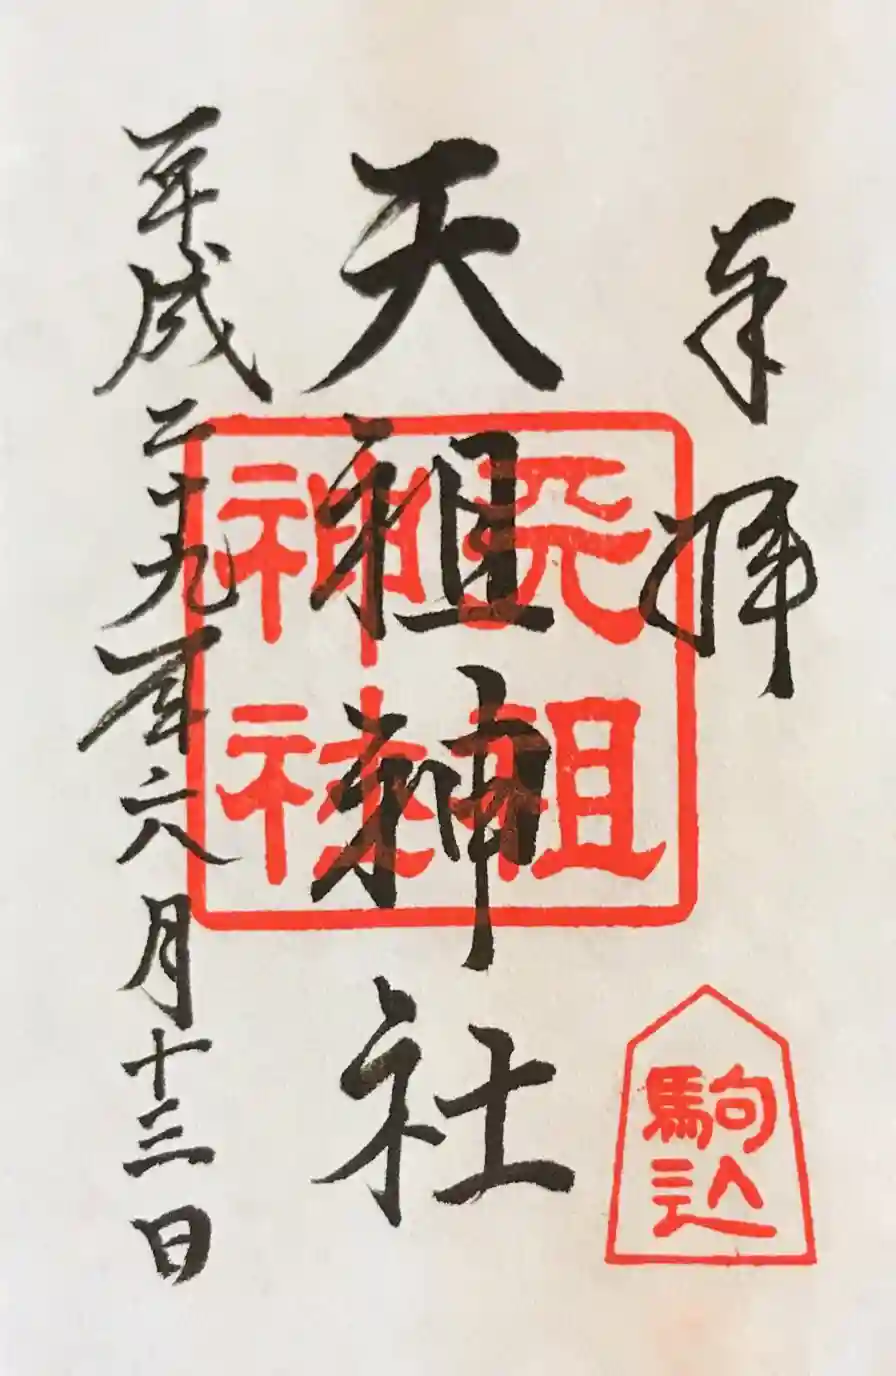 奉拝
天祖神社
平成二十九年六月十三日
天祖
神社
駒込